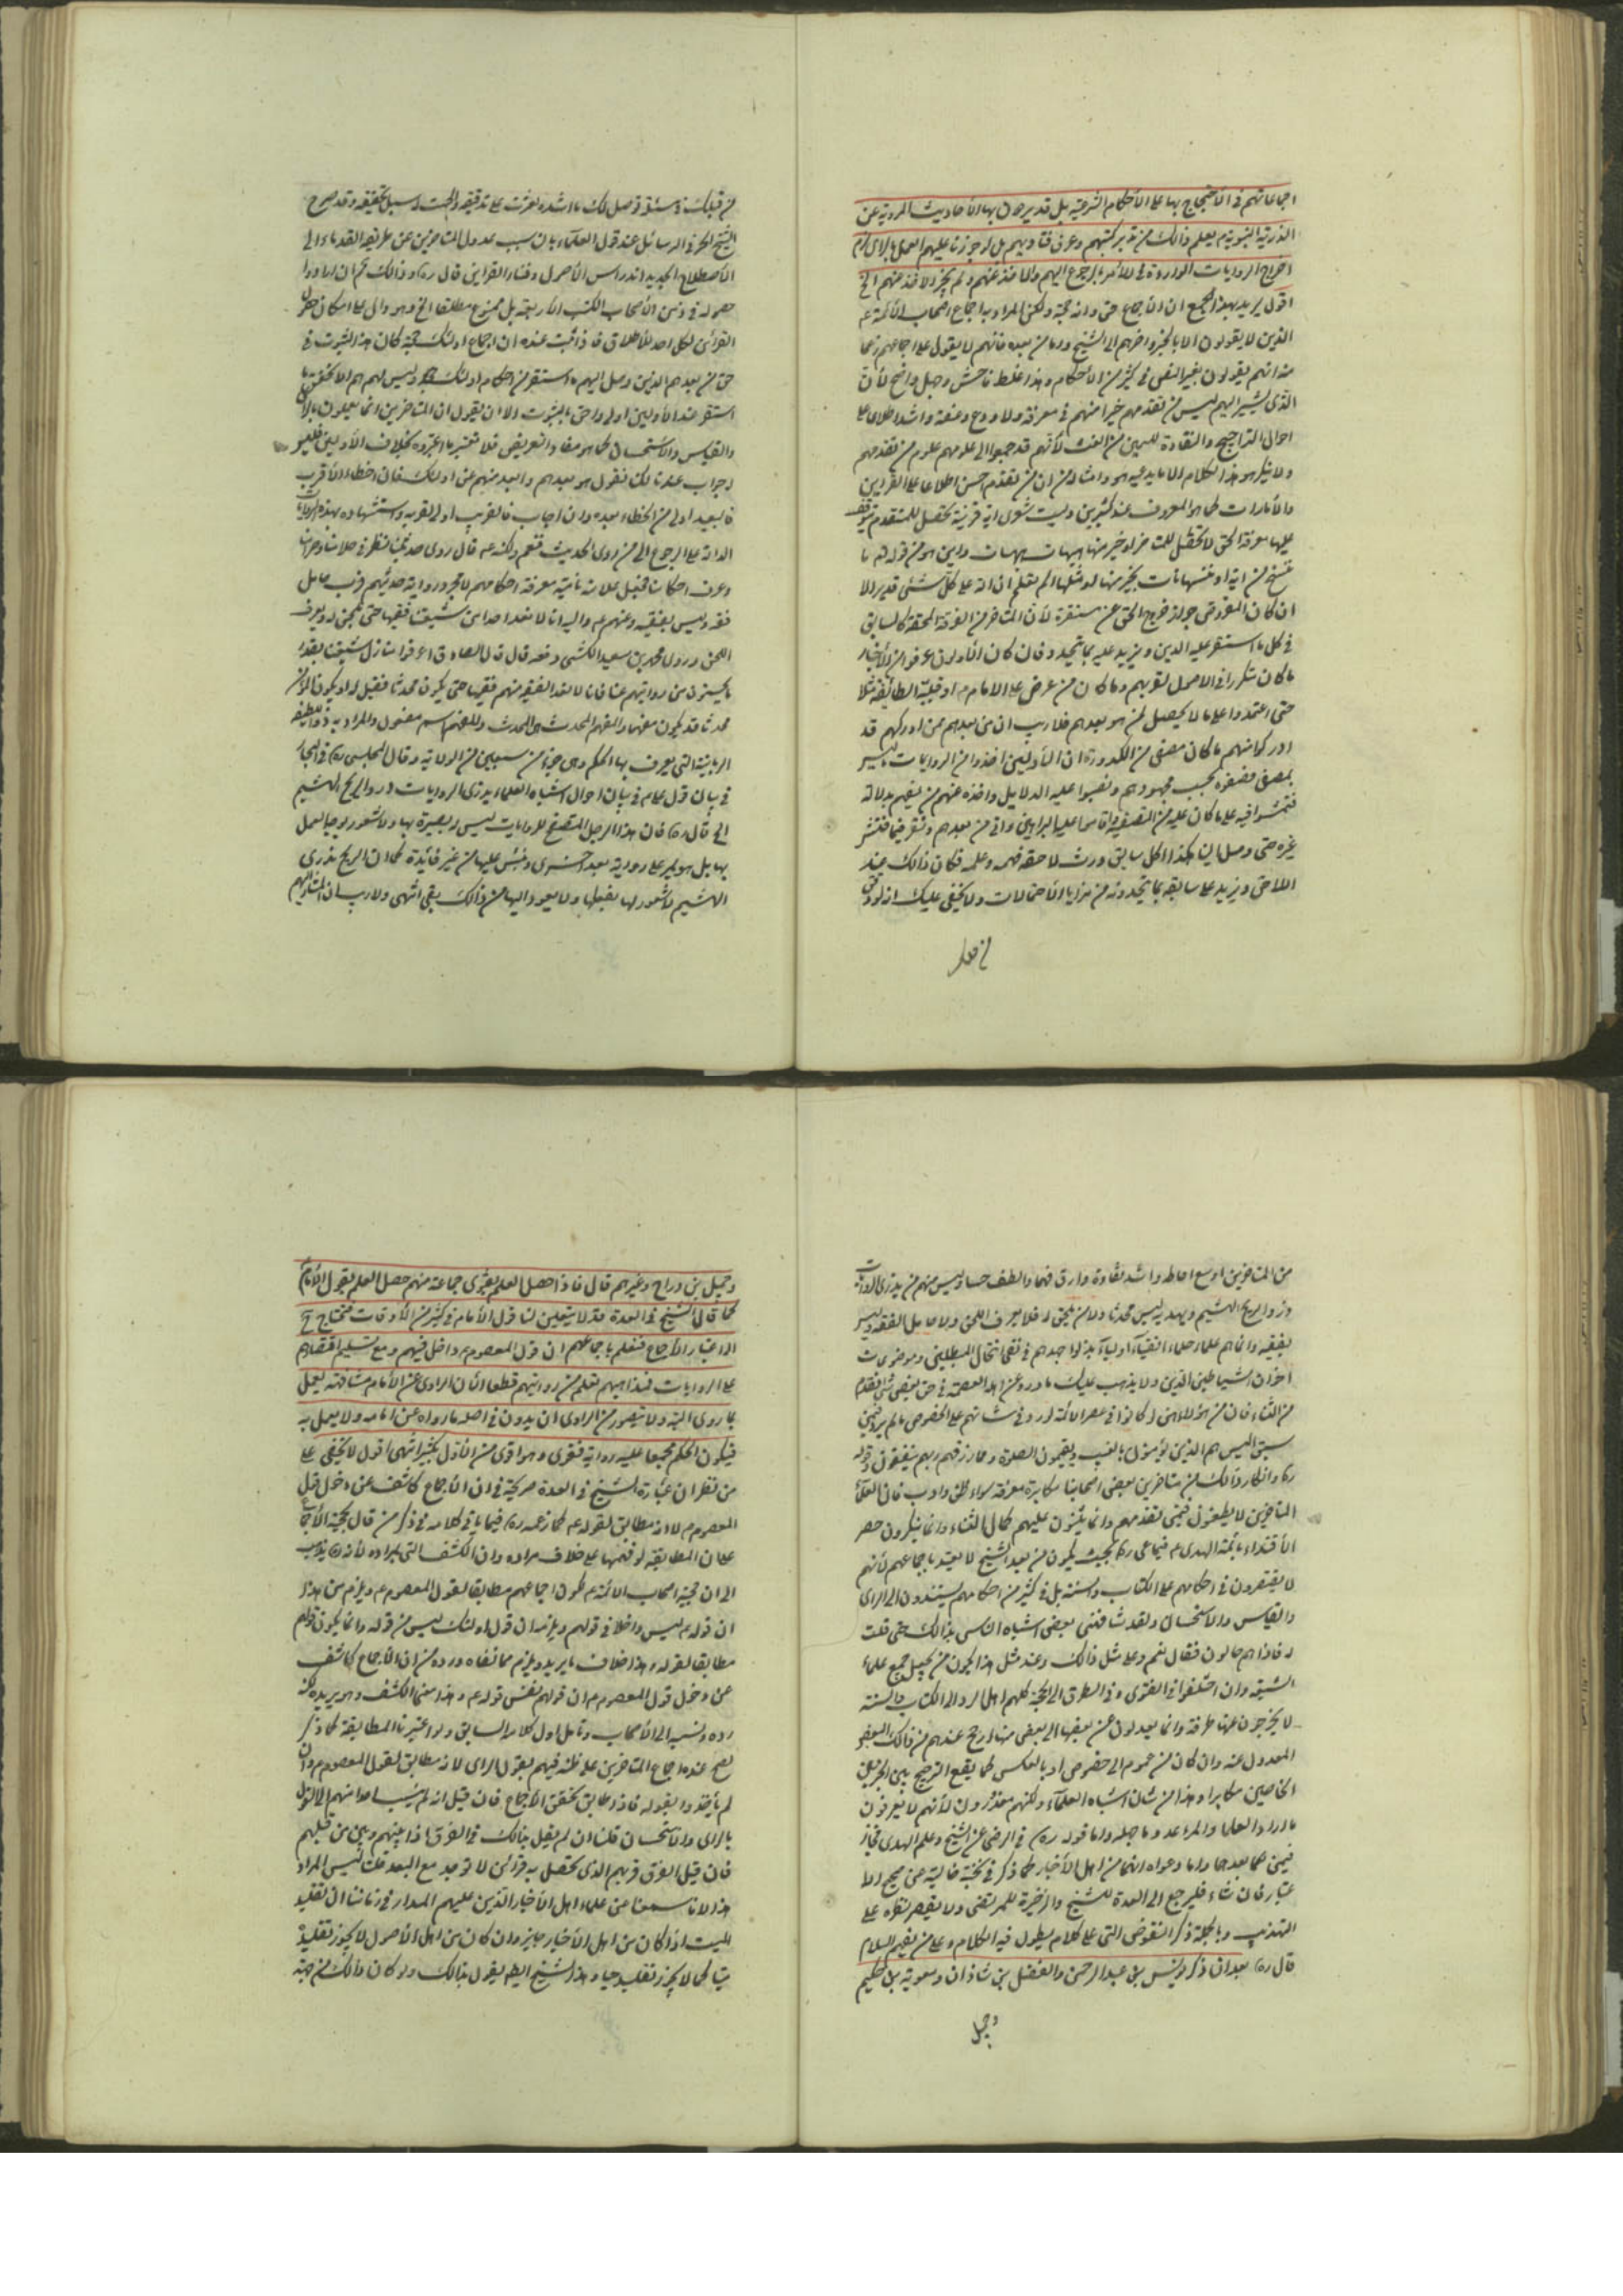 اجماعاتهم في الاحتجاج بها على الأحكام الشرعية بل قد يردون بها الأحاديث المروية عن
الذرية النبوية يعلم ذالك من تدبر كتبهم وعرف فتاويهم بل لو جوزنا عليهم العمل بالراى لزم
اخراج الروايات الواردة في الأمر بالرجوع اليهم والاخذ عنهم ولم يجز الاخذ منهم الخ
اقول يريد بهذا الجمع ان الأجماع حق وانه حجة ولكن المراد به اجماع اصحاب الأئمة ع
الذين لا يقولون الا بالخبر واخرهم الى الشيخ واما من بعده فانهم لا يقول على اجماعهم زعما
منه انهم يقولون بغير النص في كثير من الأحكام وهذا غلط فاحش وجهل واضح لأن
الذى يشير اليهم ليس من تقدمهم خيرا منهم في معرفة ولا ورع وعفة واشد اطلاع على
احوال التراجيح والنقادة للسمين من الغث لأنهم قد جمعوا الى علومهم علوم من تقدمهم
ولا ينكر هو هذا الكلام الا ما يدعيه هو وامثاله من ان من تقدم احسن اطلاعا على القراين
والأمارات كما هو المعروف عند كثيرين وليت شعرى اية قرينة تحصل للمتقدم يتوقف
عليها معرفة الحق لا تحصل للمتاخر او خير منها هيهات هيهات واين هو من قوله تع ما
ننسخ من اية او ننسها نات بخير منها او مثلها الم تعلم ان الله على كل شئ قدير الا
ان كان المفروض جواز خروج الحق عن مستقره لأن المتاخر من الفرقة المحقة كالسابق
في كل ما استقر عليه الدين ويزيد عليه بما تجدد فان كان الأولون عرفوا من الأخبار
ما كان متكررا في الاصول لقربهم وما كان من عرض على الامام م او قبلته الطائفة مثلا
حتى اعتمدوا على ما لا يحصل لمن هو بعدهم فلا ريب ان من بعدهم ممن ادركهم قد
ادركوا منهم ما كان مصفى من الكدورة ان الأولين اخذوا من الروايات ليس
بمصفى فصفوه بحسب مجهودهم ونصبوا عليه الدلايل واخذه عنهم من بعدهم بدلالة
غيره حتى وصل الينا هكذا كل سابق ورث لاحقه فهمه وعلمه فكان ذالك عند
اللاحق ويزيد على سابقه بما تجد ونه من مزايا الاحتمالات ولا يخفى عليك انه لو وقف
من قبلك
من قبلك في مسئلة وصل لك ما اشتد لعثرت على تدقيقه والجت سبيل تحقيقه وقد صرح
الشيخ الحر في الرسائل عند قول العلماء بان سبب عدول المتاخرين عن طريقه القدماء الى
الأصطلاح الجديد اندراس الأصول وفقد القراين قال ره وذالك ثم ان ارادوا
حصوله في زمن الأصحاب الكتب الاربعة بل ممنوع مطلقا الخ وهو دال على امكان حصول
القرائن لكل احد للأطلاق فاذا ثبت عنده ان اجماع اولئك حجة كان هذا الثبوت في
حق من بعدهم الذين وصل اليهم ما استقر من احكام اولئك وليس لهم هم الا تحقيق ما
استقر عند الأولين اولى واحق بالثبوت الا ان يقول ان المتاخرين انما يعملون بالراى
والقياس والاستحسان كما هو مفاد التعريض فلا تعتبر ما اعتبروه بخلاف الأولين فليس
له جواب عندنا لكن نقول هو بعدهم وابعد منهم عن اولئك فان اخطاء الأقرب
فالبعيد اولى من الخطاء بعده وان اصاب فالقريب اولى لقربه واستشهاده بهذه الروايات
الدالة على الرجوع الى من روى الحديث فنعم ولكنه ع قال روى حديثنا ونظر في حلالنا وحرامنا
وعرف احكامنا فجعل علامة نائبه معرفة احكامهم لا مجرد رواية حديثهم فرب حامل
فقه وليس بفقيه وعنهم ع والله انا لا نعد احدا من شيعتنا فقيها حتى يلحن له ويعرف
اللحن وروى محمد بن سعيد الكشى رفعه قال قال الصادق ع اعرفوا منازل شيعتنا بقدر
ما يحسنون من رواياتهم عنا فانا لا نعد الفقيه منهم فقيها حتى يكون محدثا فقيل له او يكون المؤمن
محدثا قال يكون مفهما والمفهم المحدث والمفهم اسم مفعول والمراد به ذو اللطيفة
الربانية التى يعرف بها الحكم وهى جزء من سبعين من الولاية وقال المجلسى ره في البحار
في بيان قول على ع في بيان احوال اشباه العلماء يذرى الروايات ذرو الريح الهشيم
الى قال ره فان هذا الرجل المتصفح للروايات ليس له بصيرة بها ولا شعور بوجه العمل
بها بل هو يمر على رواية بعد اخرى ويمشى عليها من غير فائدة كما ان الريح تذرى
الهشيم لا شعور لها بفعلها ولا يعود اليها من ذالك نفع انتهى ولا ريب ان المشار اليهم
من المتاخرين اوسع احاطة واشد نقادة وارق فهما والطف حسا وليس منهم من يذرى الروايات
ذرو الريح الهشيم ويهذ به ليس محدثا ولا من يلحن له فلا يعرف اللحن ولا حامل الفقه وليس
بفقيه وانما هم علماء حلماء اتقياء اولياء بذلوا جهدهم في نفى انتحال المبطلين
اخوان الشياطين الذين ولا يذهب عليك ما ورد عن اهل العصمة في حق بعض من تقدم
من الثناء فان من هؤلاء من لو كانوا في عصر الأئمة لورد في شانهم على الخصوص ما لم يرد فيمن
سبق اليس هم الذين يؤمنون بالغيب ويقيمون الصلوة ومما رزقهم ربهم ينفقون وقوله
ره وانكار ذالك من متاخرين بعض اصحابنا مكابرة معرفته سواء ظن وادب فان العلماء
المتاخرين لا يطعنون فيمن تقدمهم وانما يثنون عليهم كمال الثناء وانما ينكرون حصر
الأقتداء بأئمة الهدى ع فيما عى ره بحيث يكون من بعد الشيخ لا يعتد باجماعهم لأنهم
لا يقتصرون في احكامهم على الكتاب والسنة بل في كثير من احكامهم يستندون الى الراى
والقياس والاستحسان ولقد شافهنى بعض اشباه الناس بذالك حتى قلت
له فاذا هم ضالون فقال نعم وعلى مثل ذالك وعند مثل هذا يكون من يحصل جميع علماء
الشيعة وان اختلفوا في الفتوى وفي الطرق الى الحجة كلهم اهل الرد الى الكتاب والسنة
لا يخرجون عنها طرفة وانما يعدلون عن بعضها الى بعض منها ارجح عندهم من ذالك البعض
المعدول عنه وان كان من عموم الى خصوص او بالعكس كما يقع الترجيح بين الخبرين
الخاصين مكابرا وهذا من شان اشباه العلماء ولكنهم معذورون لأنهم لا يعرفون
ما اراد العلما والمرء عدو ما جهله واما قوله ره في الرضى عن الشيخ وعلم الهدى فجاز
فيمن هما بعدهما واما دعواه انهما من اهل الأخبار كما ذكر في نخبة خالية عن صحيح الا
عتبار فان شاء فليرجع الى العدة للشيخ والذخيرة للمرتضى ولا يقصر نظره على
التهذيب وبالجملة ذكر النقوض التى على كلامه يطول فيه الكلام وعلى من يفهم السلام
قال ره بعد ان ذكر يونس بن عبد الرحمن والفضل بن شاذان ومعوية بن حكيم
وجميل
وجميل بن دراج وغيرهم قال فاذا حصل العلم بفتوى جماعة منهم حصل العلم بقول الأمام
كما قال الشيخ في العدة قد لا يتعين لنا قول الأمام في كثير من الأوقات فنحتاج ح
الى اعتبار الأجماع فنعلم باجماعهم ان قول المعصوم ع داخل فيهم ومع تسليم اقتصارهم
على الروايات فمذاهبهم تعلم من روايتهم قطعا لأن الراوى عن الأمام مشافهة يعمل
بما روى البتة ولا يتصور من الراوى ان يدون في اصوله ما رواه عن امامه ولا يعمل به
فيكون الحكم مجمعا عليه رواية وفتوى وهو اقوى من الأول بكثير انتهى اقول لا يخفى على
من نظر ان عبارة الشيخ في العدة صريحة في ان الأجماع كاشف عن دخول قول
المعصوم م لا انه مطابق لقوله ع كما زعمه ره فيما ياتى كلامه في ذكر من قال بحجية الأجماع
على ان المطابقة لو فهمها على خلاف مراده وان الكشف التى يراد له لأنه ره يذهب
الى ان حجية اصحاب الأئمة ع لكون اجماعهم مطابقا لقول المعصوم ع ويلزم من هذا
ان قوله ع ليس داخلا في قولهم ويلزمه ان قول اولئك ليس من قوله وانما يكون قولهم
مطابقا لقوله وهذا خلاف ما يريد ويلزم مما نفاه ورده من ان الأجماع كاشف
عن دخول قول المعصوم م ان قولهم نفس قوله ع وهذا معنى الكشف وهو يريده لكنه
رده ونسبه الى الأصحاب وتامل اول كلامه السابق ولو اعتبرنا المطابقة كما ذكر
يصح عنده اجماع المتاخرين على ظنه فيهم بقول الراى لانه مطابق لقول المعصوم م وان
لم ياخذوا بقوله فاذا طابق تحقق الأجماع فان قيل انه لم ينسب احدا منهم الى القول
بالراى والاستحسان قلنا ان لم يقل بذالك فما الفرق اذا بينهم وبين من قبلهم
فان قيل الفرق قربهم الذى تحصل به قرائن لا توجد مع البعد قلت ليس المراد
هذا لانا سمعنا من علماء اهل الأخبار الذين عليهم المدار في زماننا ان تقليد
الميت اذا كان من اهل الأخبار جايز وان كان من اهل الأصول لا يجوز تقليده
ميتا كما لا يجوز تقليده حيا وهذا الشيخ ايضا يقول بذالك ولو كان ذالك من جهة